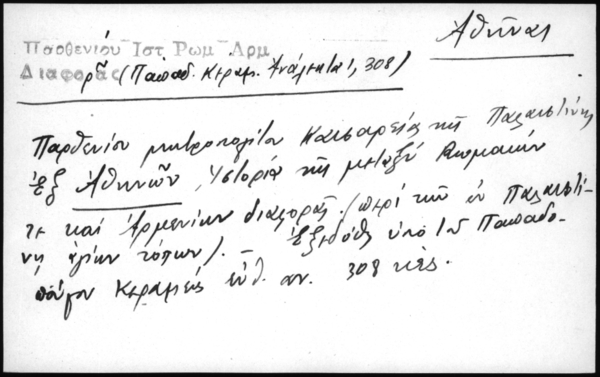 Ἀθῆναι
Παρθενίου Ἱστ Ρωμ Αρμ
Διαφορᾶς (Παπαδ. Κεραμ. Ἀνάλεκτα 1, 308)
Παρθενίου μητροπολίτου Καισαρείας τῆς Παλαιστίνης
ἐξ Ἀθηνῶν, Ἱστορία τῆς μεταξὺ Ρωμαίων
τε καὶ Ἀρμενίων διαφορᾶς (περὶ τῶν ἐν Παλαιστί-
νῃ ἁγίων τόπων). – Ἐξεδόθη ὑπὸ τοῦ Παπαδο-
πούλου Κεραμέως 308 κἑξ.